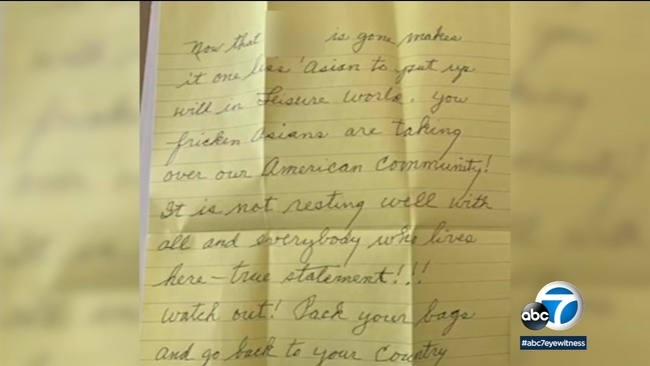 Now that is gone makes
it one less 'Asian to put up
will in Leisure World. you
fricken Asians are taking
over our American Community!
It is not resting well with
all and everybody who lives
here - true statement!!!
watch out! Pack your bags
and go back to your Country
abc 7
#abc7eyewitness